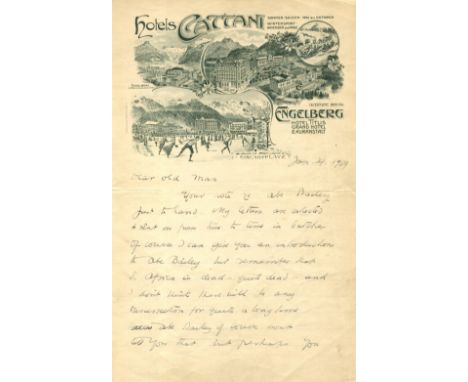 Hotels CATTANI
ENGELBERG
HOTEL TITLIS
GRAND HOTEL
& KURANSTALT
Jan 4. 1909
Dear old Man
Your note re Abe Bailey
just to hand. My letters are
from time to time in
Of course I can give you an introduction
to Abe Bailey but remember that
S. Africa is dead - quite dead - and
I don't think there will be any
resurrection for quite a long
Abe Bailey of course
You that but perhaps You